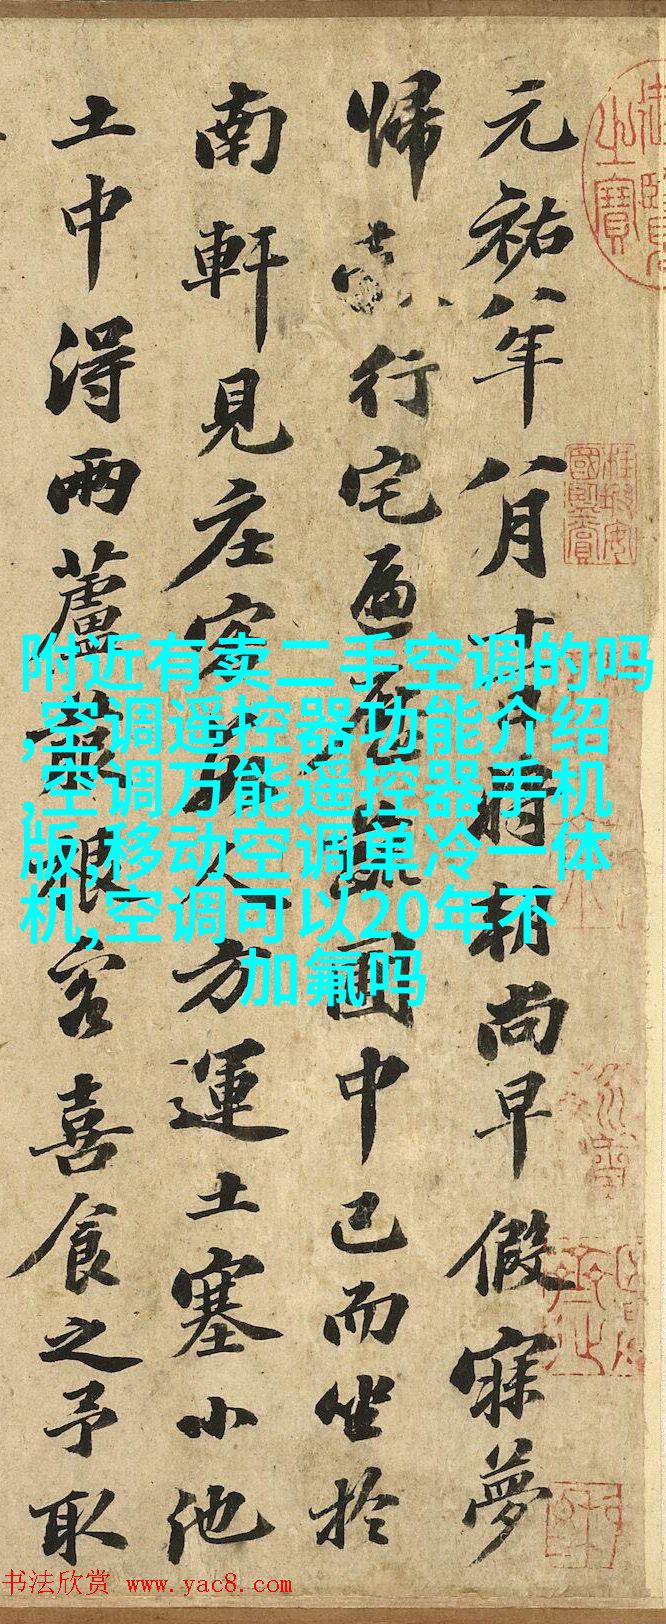 元祐八年八月十一日將朝尚早假寐夢
歸行宅遍歷蔬圃中已而坐於
南軒見庄客數人方運土塞小池
土中得兩蘆菔根客喜食之予取
附近有卖二手空调的吗
,空调遥控器功能介绍
,空调万能遥控器手机
版,移动空调单冷一体
机,空调可以20年不
加氟吗
书法欣赏 www.yac8.com